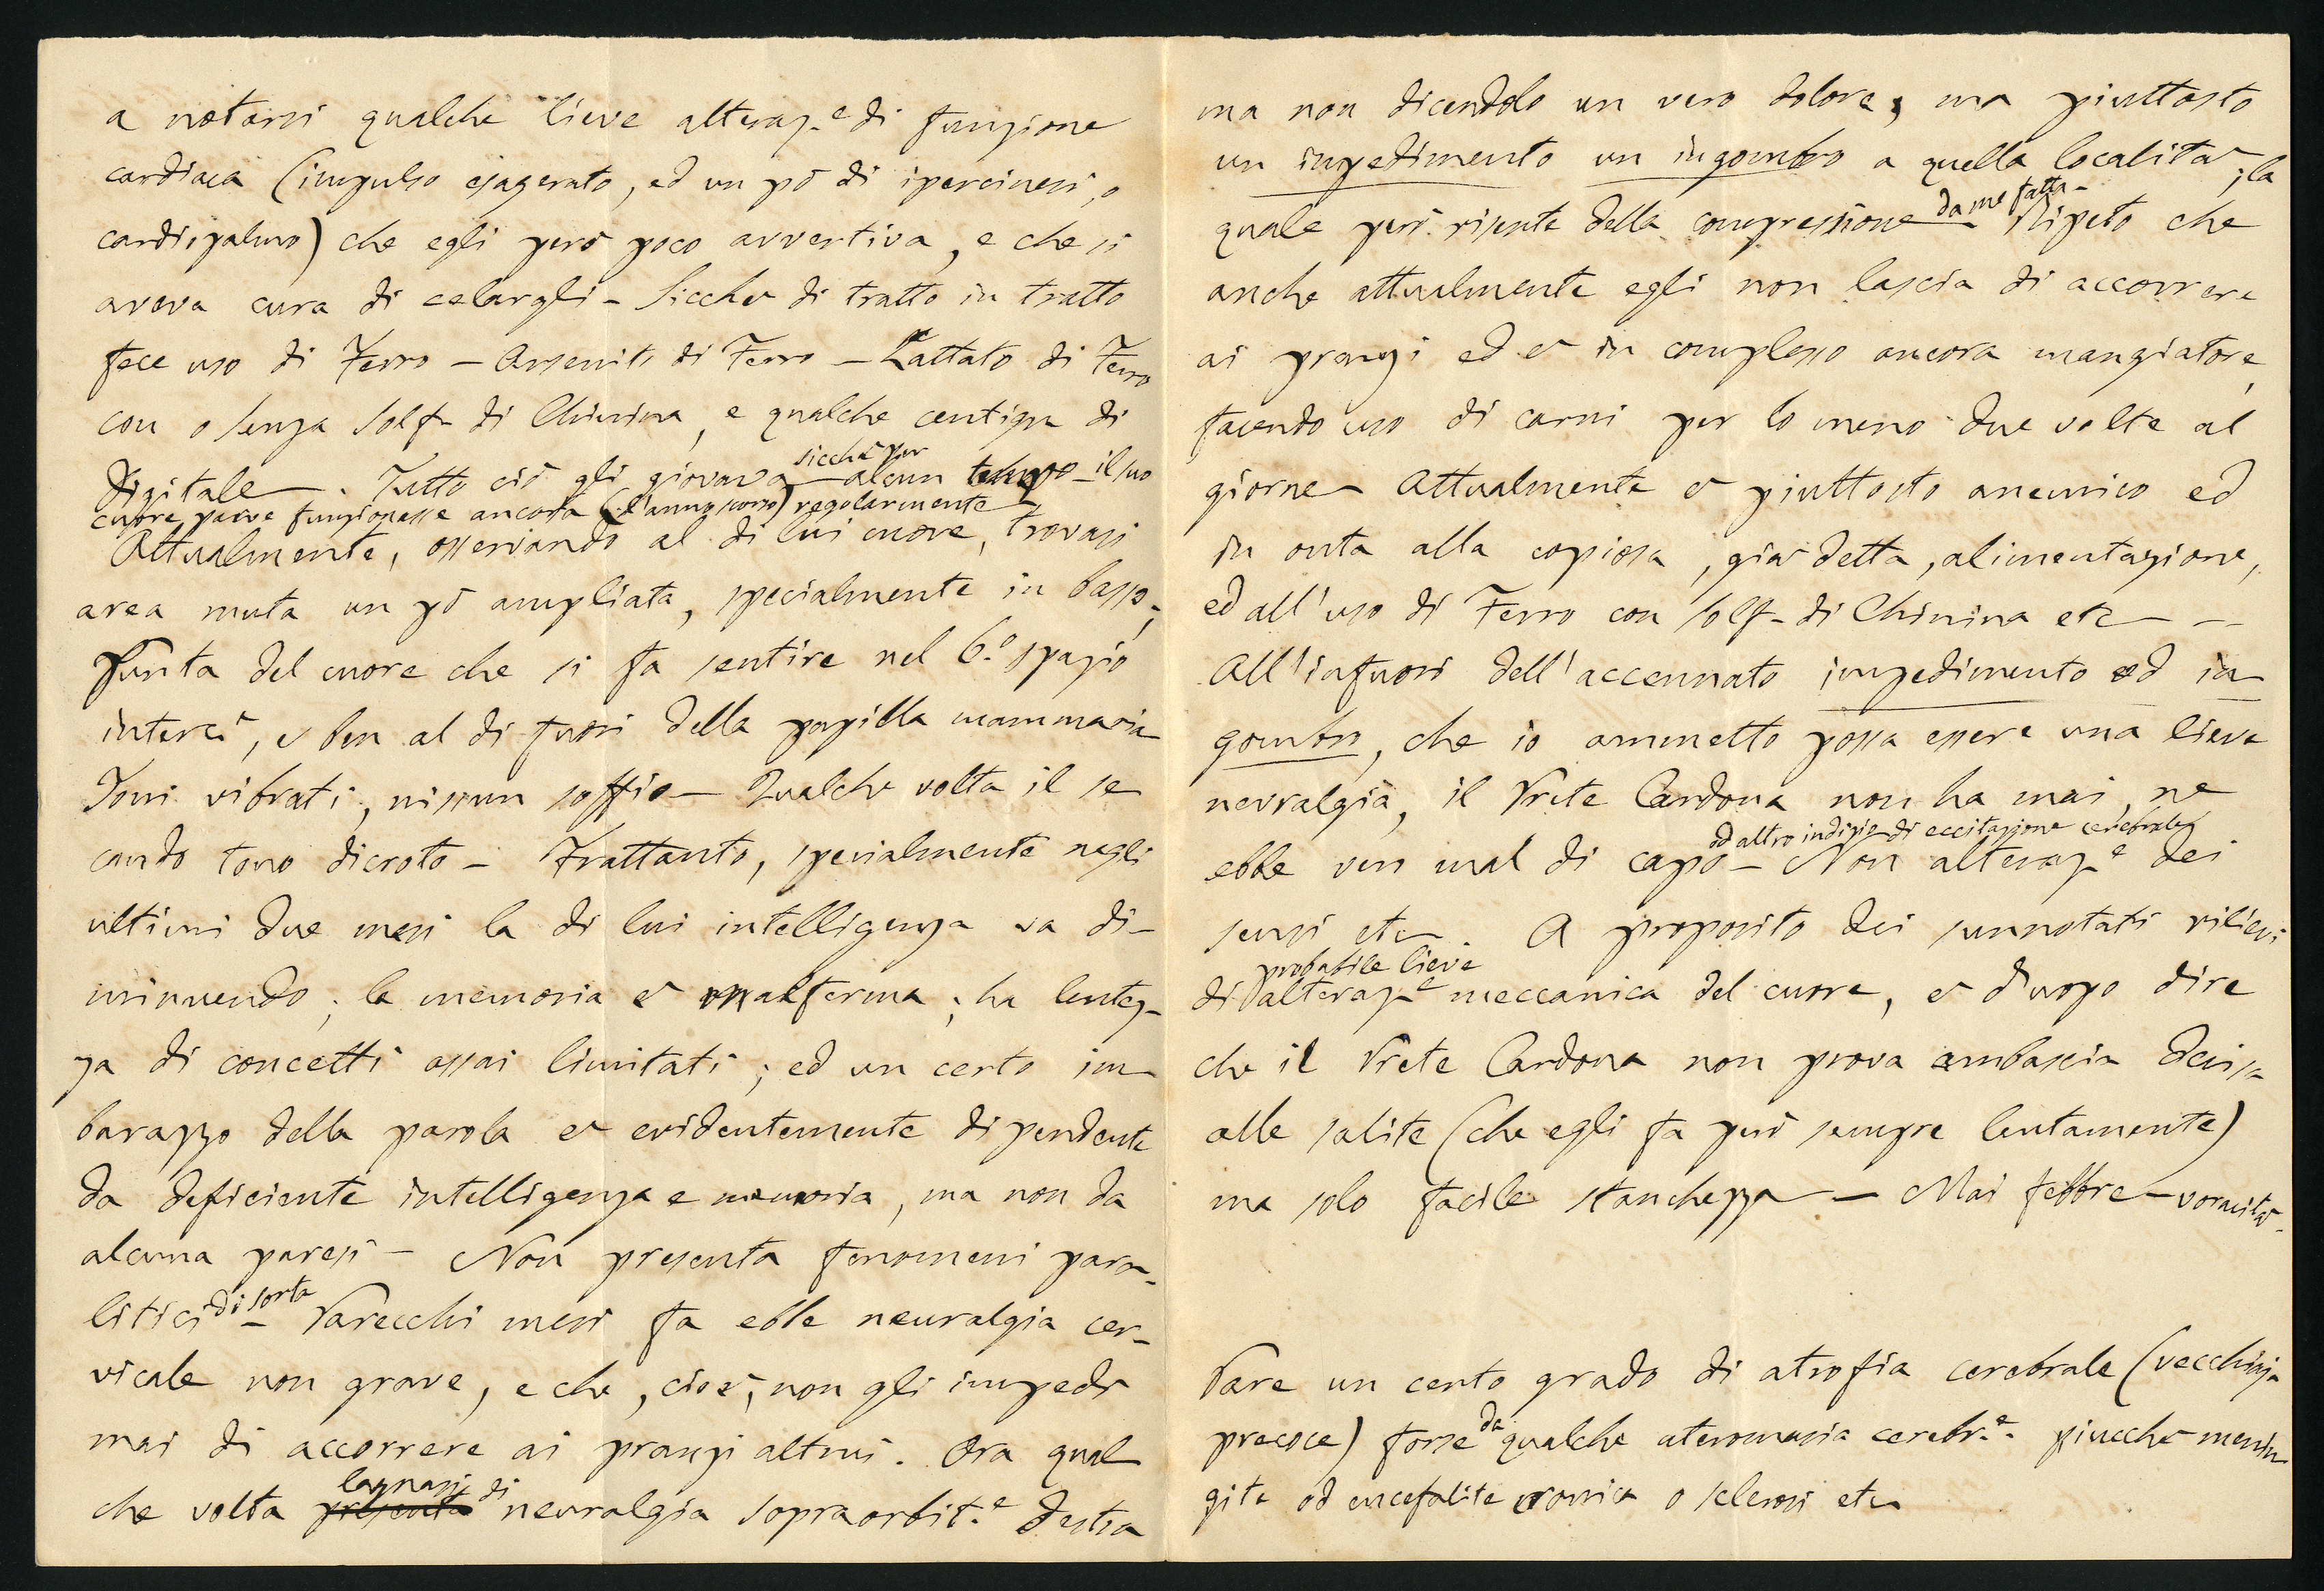 a notarsi qualche lieve alteraz.e di funzione
cardiaca (impulso esagerato, ed un pò di ipercinesi, o
cardiopalmo) che egli però poco avvertiva, e che si
aveva cura di celargli – Sicche di tratto in tratto
fece uso di Ferro – Arsenito di Ferro – Lattato di Ferro
con o senza Solf. di Chinina, e qualche centigr. di
Digitale –. Tutto ciò gli giovava sicchè per alcun tempo – il suo
cuore parve funzionasse ancora (l'anno scorso) regolarmente
Attualmente, osservando al di lui cuore, trovasi
area muta un pò ampliata, specialmente in basso;
Punta del cuore che si fa sentire nel 6.o spazio
interc.e, e ben al di fuori della papilla mammaria
Toni vibrati, nissun soffio – Qualche volta il se
condo tono dicroto – Frattanto, specialmente negli
ultimi due mesi la di lui intelligenza va di-
minuendo; la memoria è malferma; ha lentez-
za di concetti assai limitati; ed un certo im-
barazzo della parola è evidentemente dipendente
da deficiente intelligenza e memoria, ma non da
alcuna paresi – Non presenta fenomeni para-
litici di sorta – Parecchi mesi fa ebbe neuralgia cer-
vicale non grave, e che, cioè, non gli impedì
mai di accorrere ai pranzi altrui. Ora qual
che volta presenta lagnasi di nevralgia sopraorbit.e destra
ma non dicendolo un vero dolore, ma piuttosto
un impedimento un ingombro a quella località; la
quale però risente della compressione da me fatta – Ripeto che
anche attualmente egli non lascia di accorrere
ai pranzi ed è in complesso ancora mangiatore,
facendo uso di carni per lo meno due volte al
giorno – Attualmente è piuttosto anemico ed
in onta alla copiosa, già detta, alimentazione,
ed all'uso di Ferro con Solf. di Chinina etc – –
All'infuori dell'accennato impedimento ed in
gombro, che io ammetto possa essere una lieve
nevralgia, il Prete Cardona non ha mai, ne
ebbe ver mal di capo od altro indizio di eccitazione cerebrale – Non alteraz.e dei
sensi etc –. A proposito dei sunnotati rilievi
di probabile lieve alteraz.e meccanica del cuore, è d'uopo dire
che il Prete Cardona non prova ambascia decisa
alle salite (che egli fa però sempre lentamente)
ma solo facile stanchezza – Mai febbre – vomito –
Pare un certo grado di atrofia cerebrale (vecchiaja
precoce) forse da qualche ateromasia cerebr.e piucchè menin
gite od encefalite cronica o sclerosi etc